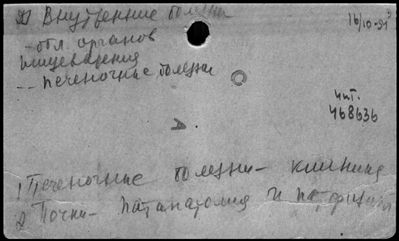 Внутренние болезни
16/10-91
- обл. органов
пищеварения
-- печеночные болезни
чит.
468636
1 Печеночные болезни - клиника
2 Почки - патанатомия и пат. физиол